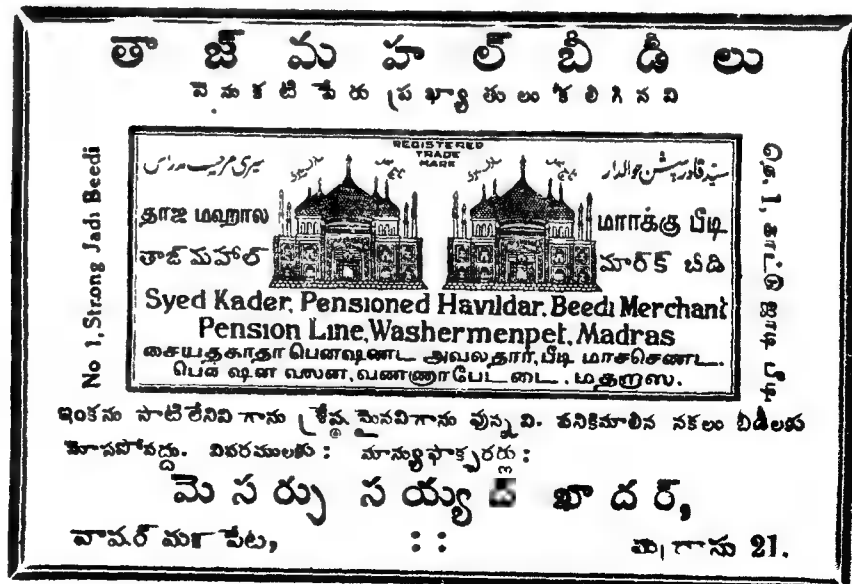 తాజ్ మహల్ బీడీలు
వెనుకటి పేరు ప్రఖ్యాతులు కలిగినవి
No 1, Strong Jadi Beedi
REGISTERED
TRADE
MARK
தாஜ மஹால மாாக்கு பீடி
తాజ్ మహాల్ మార్క్ బీడి
Syed Kader, Pensioned Havildar, Beedi Merchant
Pension Line, Washermenpet, Madras
சையதகாதா பென்ஷணட அவலதார், பீடி மாசசெண்ட.
பென் ஷன லைன, வண்ணாபேட டை. மதறாஸ.
ఇంకను సాటిలేనివి గాను శ్రేష్ఠమైనవిగాను వున్నవి. పనికిమాలిన నకలు బీడీలకు
మోసపోవద్దు. వివరములకు : మాన్యుఫాక్చరర్లు :
మెసర్సు సయ్యద్ ఖాదర్,
వాషర్ మన్ పేట, : : మద్రాసు 21.